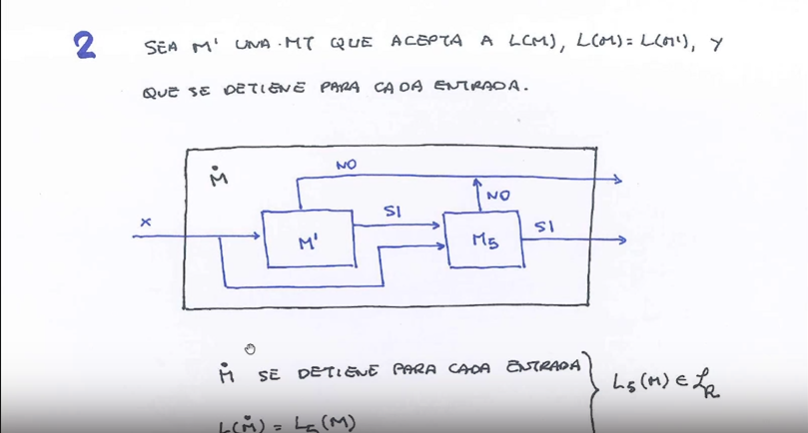 2 SEA M' UNA MT QUE ACEPTA A L(M), L(M)=L(M'), Y
QUE SE DETIENE PARA CADA ENTRADA.
Ṁ
NO
x
M'
SI
NO
M5
SI
Ṁ SE DETIENE PARA CADA ENTRADA
L5(M) ∈ ℒR
L(Ṁ) = L5(M)